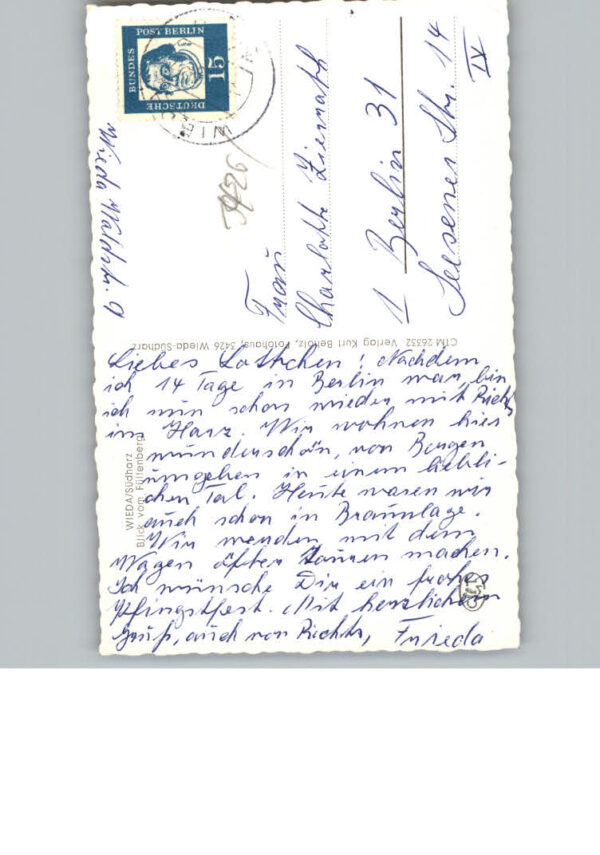 Liebes Lottchen! Nachdem
ich 14 Tage in Berlin war, bin
ich nun schon wieder mit
im Harz. Wir wohnen hier
wunderschön, von Bergen
umgeben in einem liebli-
chen Tal. Heute waren wir
auch schon in Braunlage.
Wir werden mit dem
Wagen öfter Touren machen.
Ich wünsche Dir ein frohes
Pfingstfest. Mit herzlichem
Gruß, auch von Frieda
WIEDA/Südharz
Blick vom Füllenberg
CTM 26532 Verlag Kurt Beholz, Fotohaus, 3426 Wieda-Südharz
Wieda Waldstr. 9
DEUTSCHE
BUNDES
POST BERLIN
15
WIEDA
3426
Frau
Charlotte Ziernath
1 Berlin 31
Seesener Str. 14
IV